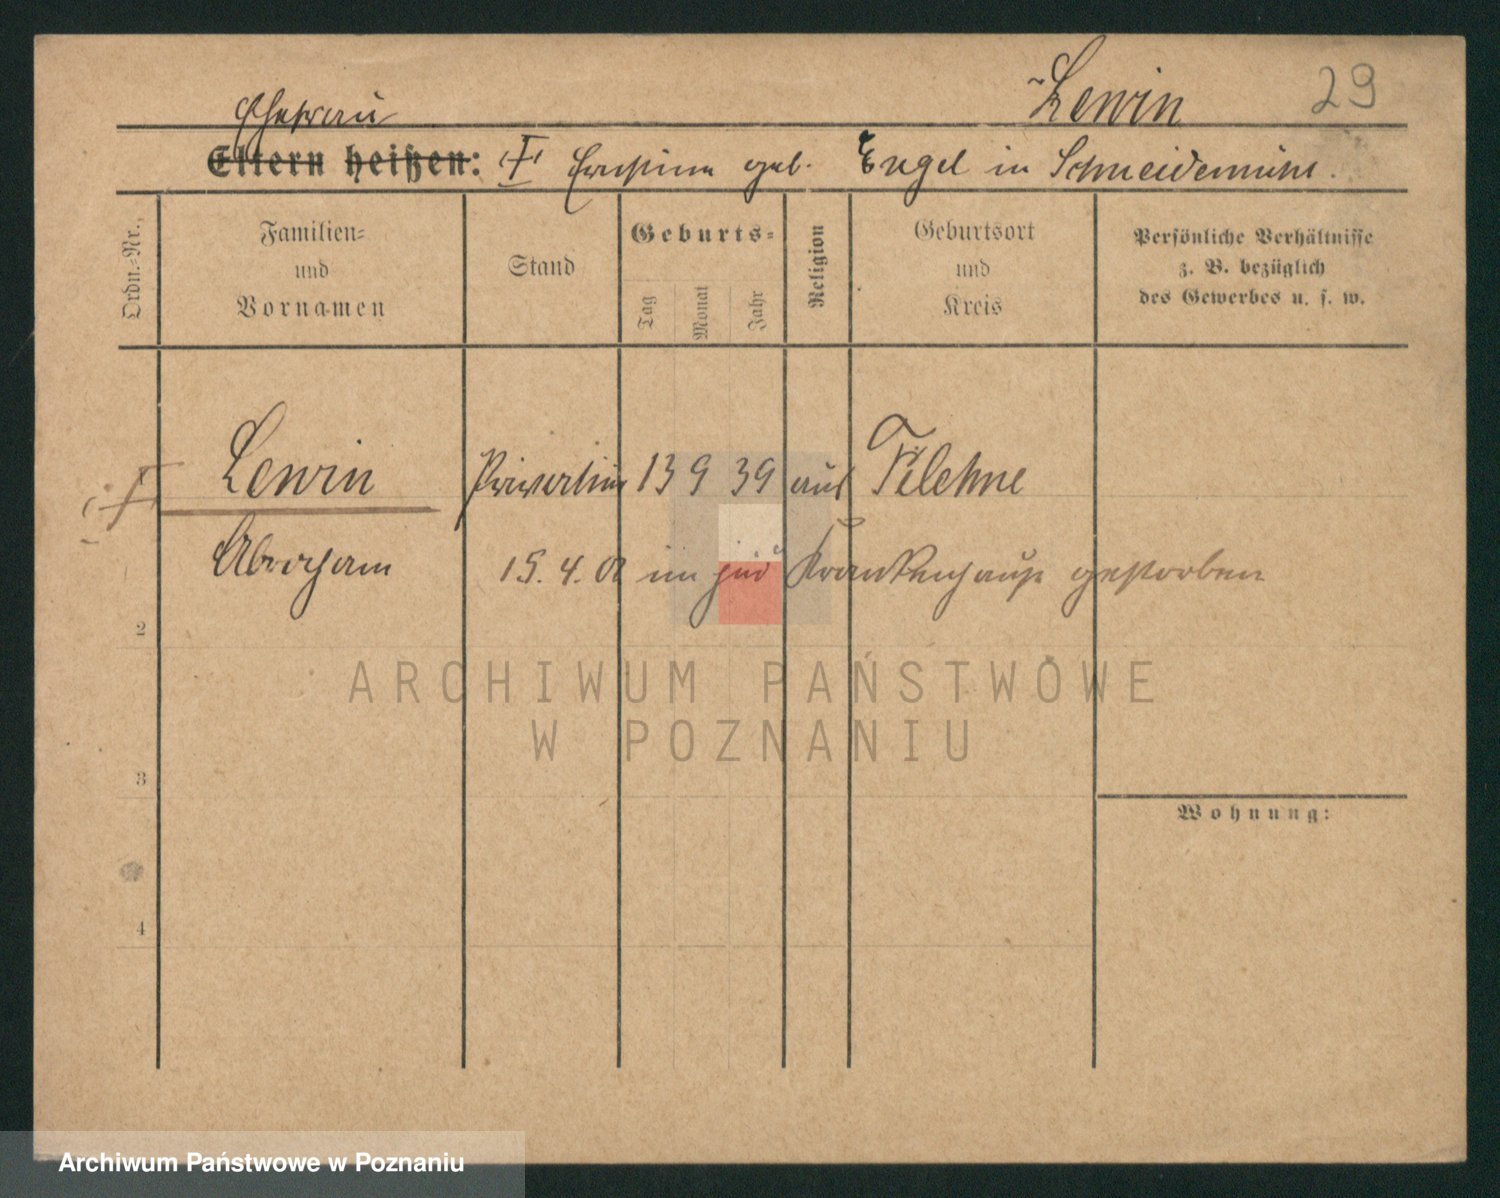 Lewin 29
Ehefrau
Eltern heißen: geb. Engel in Schneidemühl.
Ordn.-Nr.
Familien-
und
Vornamen
Stand
Geburts-
Tag
Monat
Jahr
Religion
Geburtsort
und
Kreis
Persönliche Verhältnisse
z. B. bezüglich
des Gewerbes u. s. w.
Lewin 13 9 39 aus Filehne
Abraham 15. 4. 01 im jüd Krankenhause gestorben
2
3
4
Wohnung:
ARCHIWUM PAŃSTWOWE
W POZNANIU
Archiwum Państwowe w Poznaniu